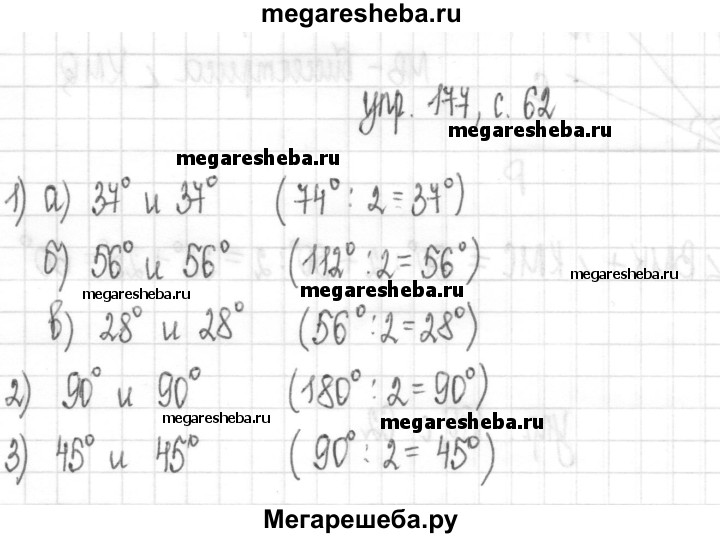 megaresheba.ru
упр. 177, с. 62
megaresheba.ru
megaresheba.ru
1) а) 37° и 37° (74° : 2 = 37°)
б) 56° и 56° (112° : 2 = 56°)
megaresheba.ru
megaresheba.ru
megaresheba.ru
в) 28° и 28° (56° : 2 = 28°)
2) 90° и 90° (180° : 2 = 90°)
megaresheba.ru
megaresheba.ru
3) 45° и 45° (90° : 2 = 45°)
Мегарешеба.ру